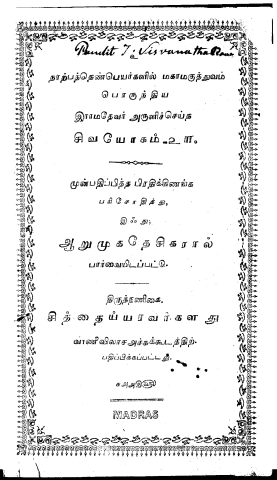 Pandit T. Visvanatha
நாற்பத்தெண்பெயர்களில் மகாமகுத்துவம்
பொருந்திய
இராமதேவர் அருளிச்செய்த
சிவயோகம்-உள.
முன்பதிப்பித்த பிரதிக்கிணங்க
பரிசோதித்து,
இஃது;
ஆறுமுகதேசிகரால்
பார்வையிடப்பட்டு-
திருத்தணிகை,
சித்தைய்யரவர்களது
வாணிவிலாசஅச்சுக்கூடத்திற்
பதிப்பிக்கப்பட்டது.
MADRAS